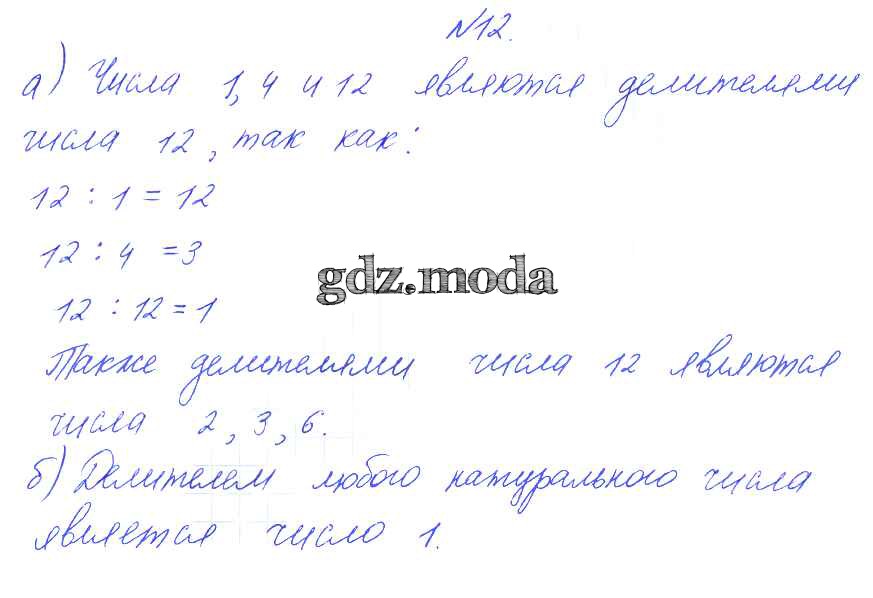 №12.
а) Числа 1, 4 и 12 являются делителями
числа 12, так как:
12 : 1 = 12
12 : 4 = 3
gdz.moda
12 : 12 = 1
Также делителями числа 12 являются
числа 2, 3, 6.
б) Делителем любого натурального числа
является число 1.